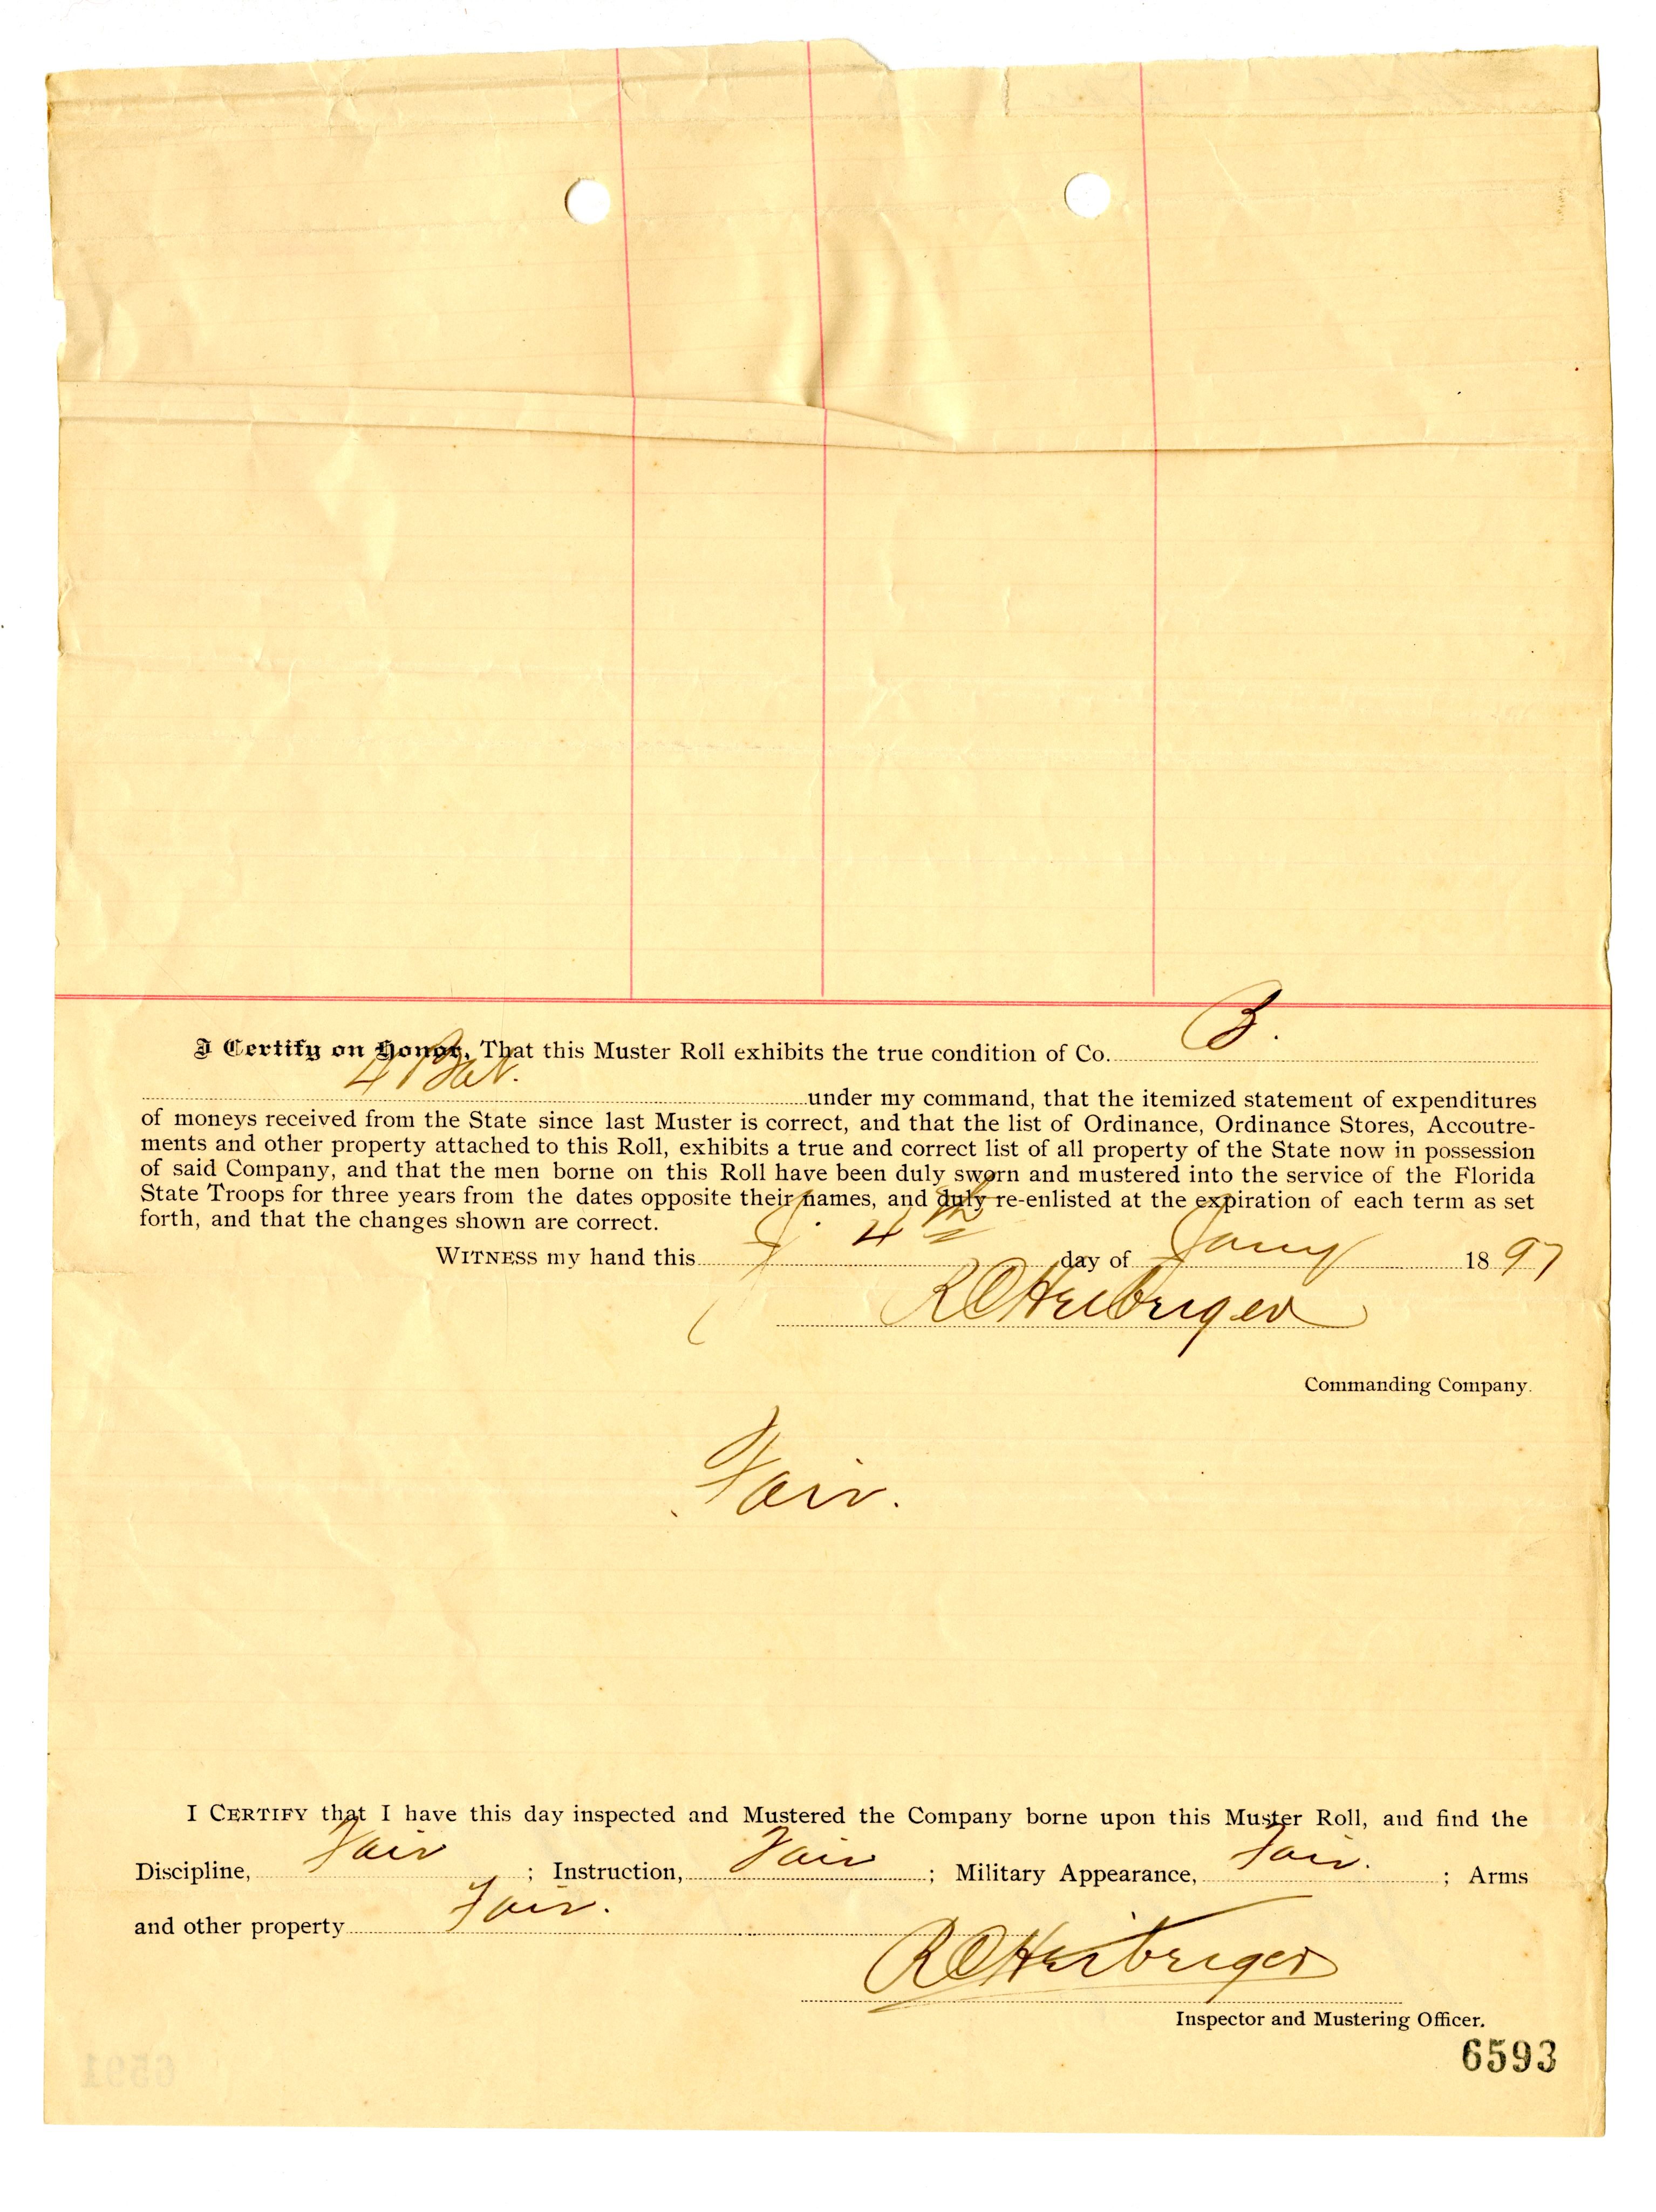 I Certify on Honor, That this Muster Roll exhibits the true condition of Co. B.
4 Bat. under my command, that the itemized statement of expenditures
of moneys received from the State since last Muster is correct, and that the list of Ordinance, Ordinance Stores, Accoutre-
ments and other property attached to this Roll, exhibits a true and correct list of all property of the State now in possession
of said Company, and that the men borne on this Roll have been duly sworn and mustered into the service of the Florida
State Troops for three years from the dates opposite their names, and duly re-enlisted at the expiration of each term as set
forth, and that the changes shown are correct.
WITNESS my hand this 4th day of Jany 1897
Commanding Company.
Fair.
I CERTIFY that I have this day inspected and Mustered the Company borne upon this Muster Roll, and find the
Discipline, Fair ; Instruction, Fair ; Military Appearance, Fair. ; Arms
and other property Fair.
Inspector and Mustering Officer.
6593